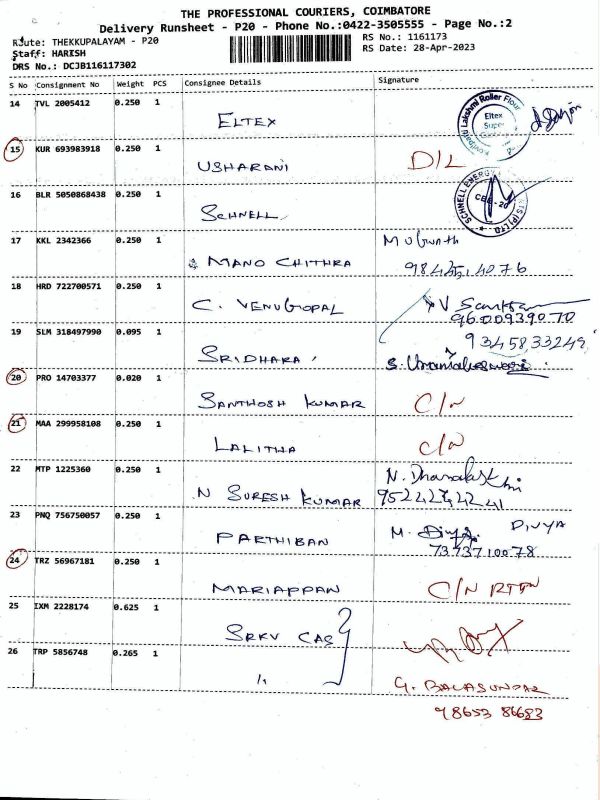 THE PROFESSIONAL COURIERS, COIMBATORE
Delivery Runsheet - P20 - Phone No.:0422-3505555 - Page No.:2
Route: THEKKUPALAYAM - P20
RS No.: 1161173
Staff: HARISH
RS Date: 28-Apr-2023
DRS No.: DCJB116117302
S No Consignment No Weight PCS Consignee Details Signature
14 TVL 2005412 0.250 1
ELTEX
Lakshmi Roller Flour
Eltex
Super
15 KUR 693983918 0.250 1
USHARANI D/L
16 BLR 5050868438 0.250 1
SCHNELL
SCHNELL ENERGY
CBE-20
(P) LTD
17 KKL 2342366 0.250 1
MANO CHITHRA
18 HRD 722700571 0.250 1
C. VENUGOPAL
9600939070
19 SLM 318497990 0.095 1
9345833249
SRIDHARA
20 PRO 14703377 0.020 1
SANTHOSH KUMAR C/N
21 MAA 299958108 0.250 1
LALITHA C/N
22 MTP 1225360 0.250 1
N SURESH KUMAR
23 PNQ 756750057 0.250 1
DIVYA
PARTHIBAN
7373710078
24 TRZ 56967181 0.250 1
MARIAPPAN C/N RTN
25 IXM 2228174 0.625 1
SRKV CAS
26 TRP 5856748 0.265 1
"
G. BALASUNDAR
98653 86683